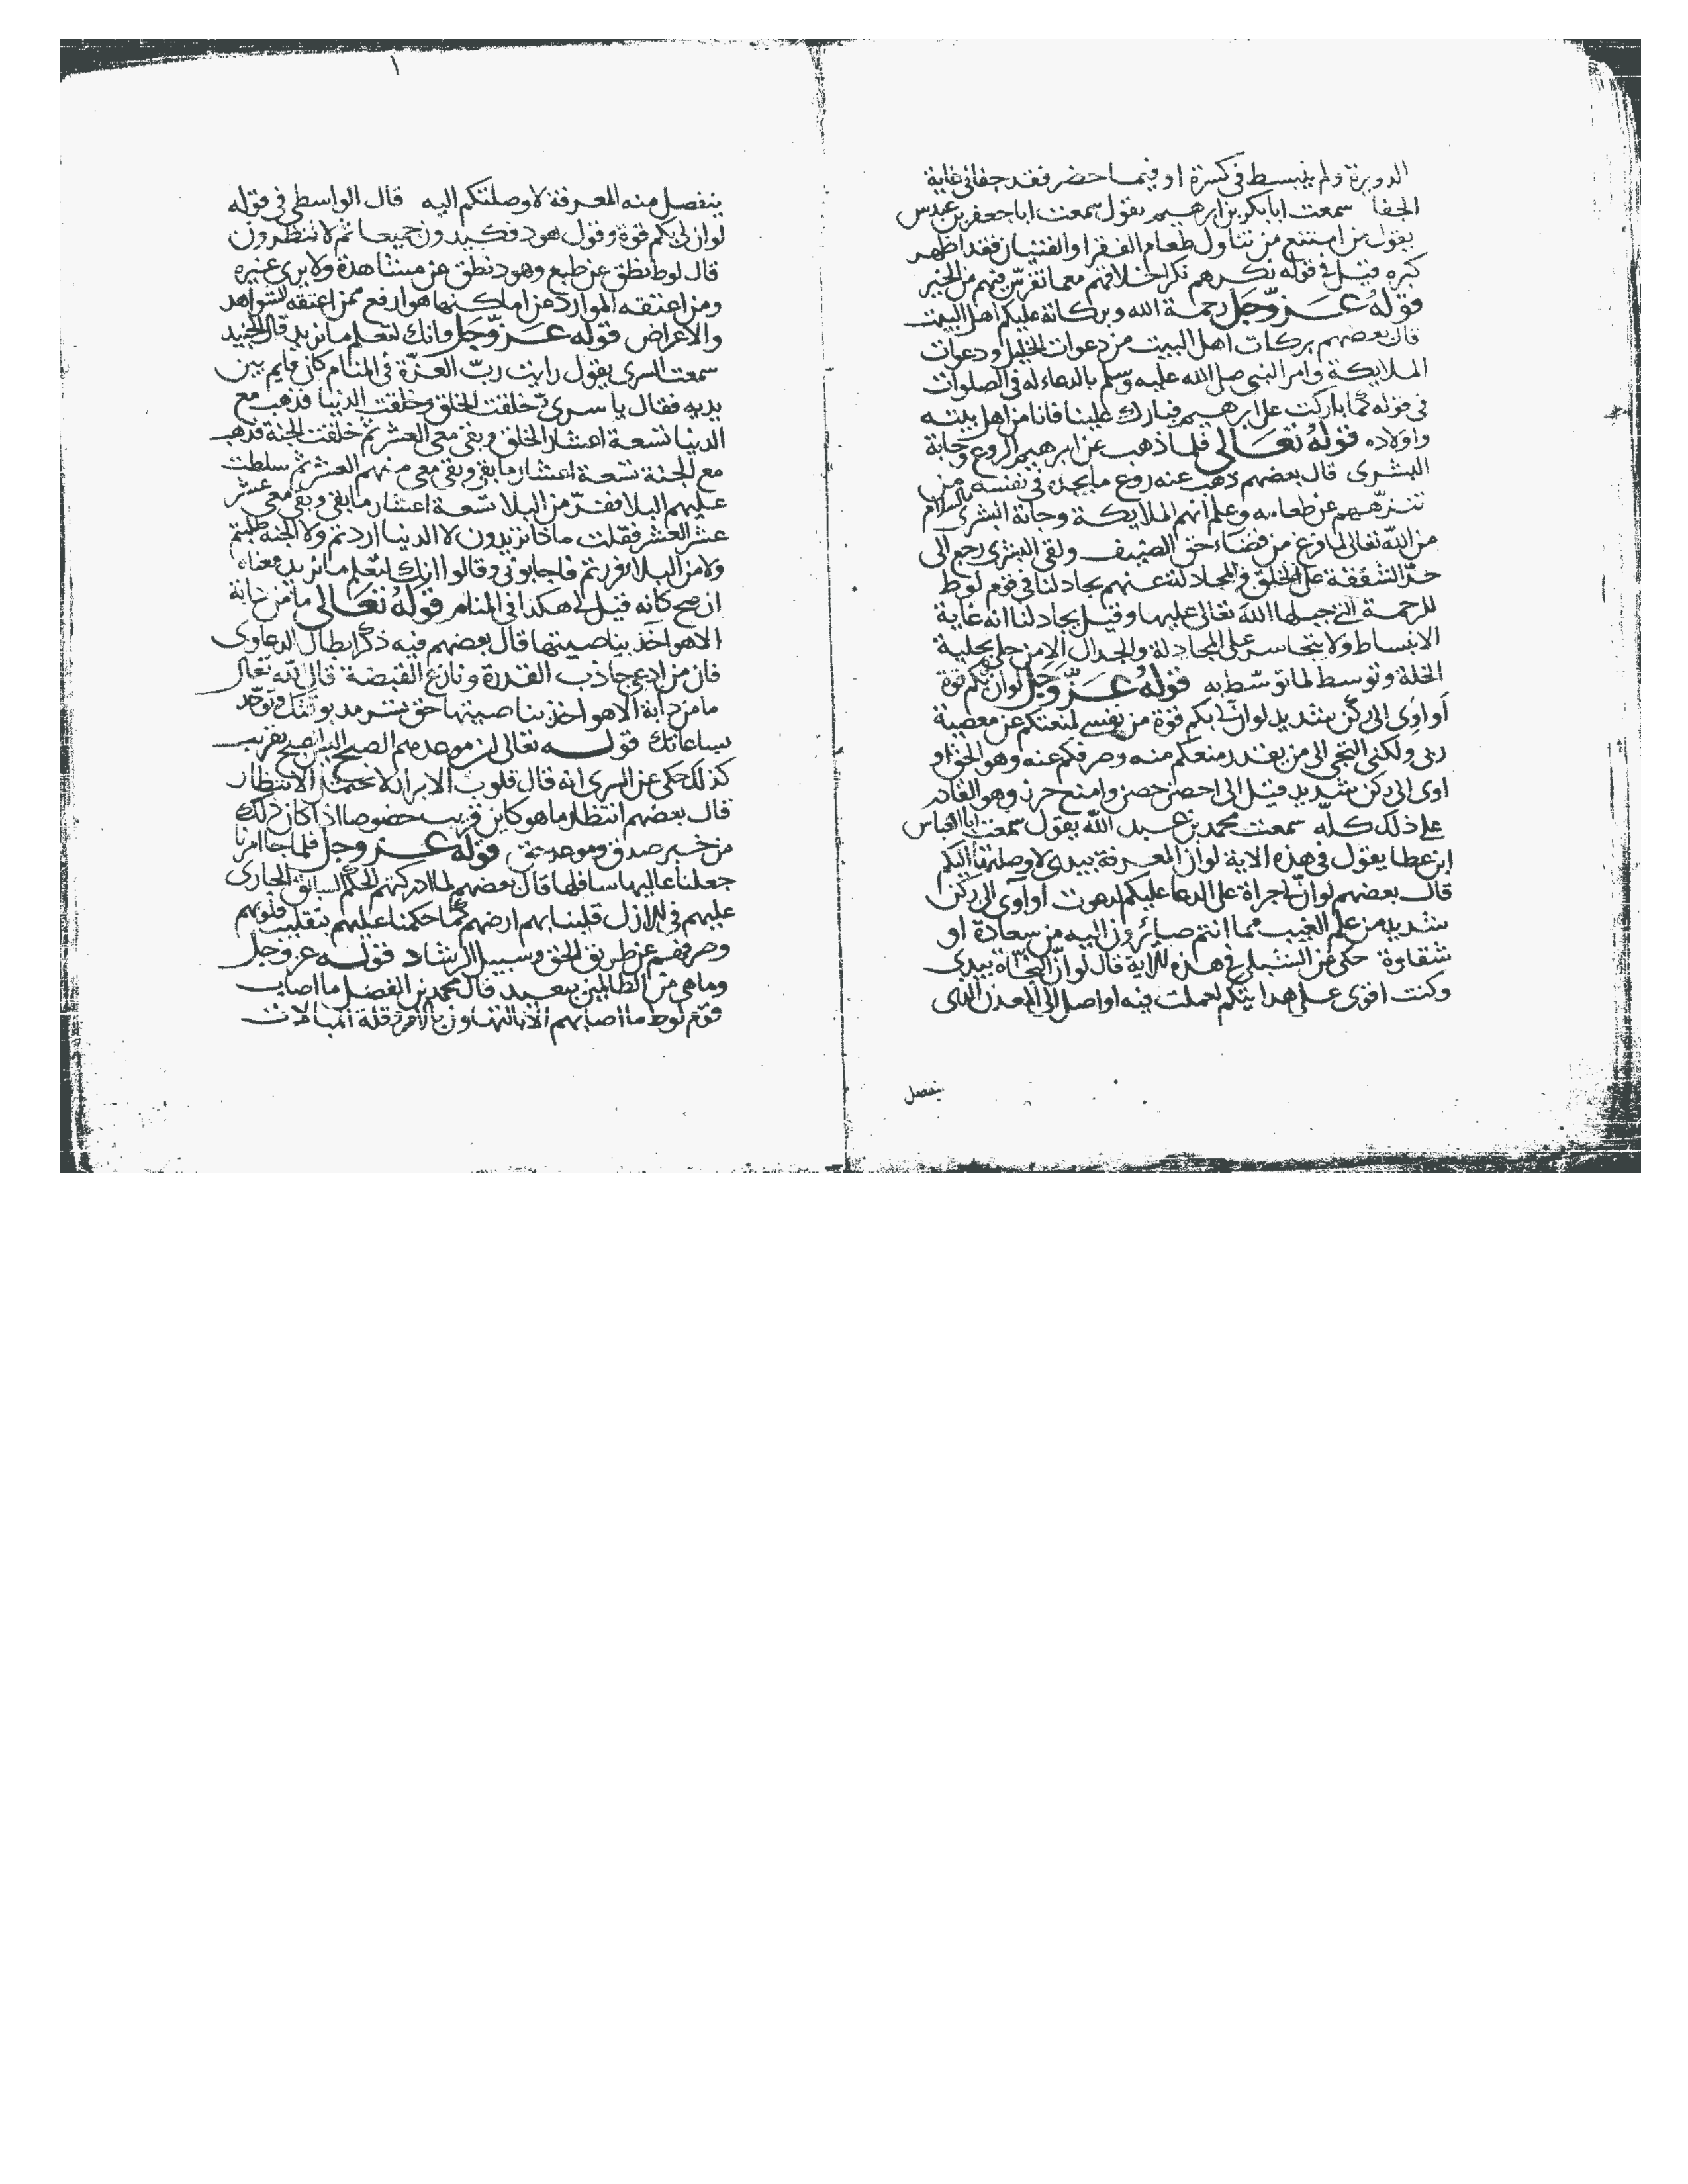 الدويرة ولم ينبسط فى كسرة او فيما حضر فقد جفانى غاية
الجفا سمعت ابا بكر بن ابرهيم يقول سمعت ابا جعفر بن عبدس
يقول من امتنع من تناول طعام الفقرا والفتيان فقد اظهر
كبره قيل فى قوله نكرهم نكر اخلاقهم مما تفرّس فيهم من الخير
قوله عز وجل رحمة الله وبركاته عليكم اهل البيت
قال بعضهم بركات اهل البيت من دعوات الخليل ودعوات
الملايكة وامر النبى صلى الله عليه وسلم بالدعاء له فى الصلوات
فى قوله كما باركت على ابرهيم فبارك علينا فانا من اهل بيته
واولاده قوله تعالى فلما ذهب عن ابرهيم الروع وجاته
البشرى قال بعضهم ذهب عنه روع ما يجده فى نفسه من
تنزّههم عن طعامه وعلم انهم الملايكة وجاته البشرى بالسلام
من الله تعالى لما فرغ من قضاء حق الضيف ولقى البشرى رجع الى
حدّ الشفقة على الخلق والمجادلة عنهم يجادلنا فى قوم لوط
للرحمة التى جبله الله تعالى عليها وقيل يجادلنا انه غاية
الانبساط ولا يتجاسر على المجادلة والجدال الا من حلى بحلية
الخلة وتوسط لما توسّط به قوله عز وجل لو ان لى بكم قوة
أو اوى الى ركن شديد لو ان لى بكم قوة من نفسى لمنعتكم عن معصية
ربى ولكنى التجى الى من يقدر منعكم منه وصرفكم عنه وهو الحق او
اوى الى ركن شديد قيل الى احصن حصن وامنع حرز وهو القادر
على ذلك كلّه سمعت محمد بن عبد الله يقول سمعت ابا العباس
ابن عطا يقول فى هذه الاية لو ان المعرفة بيدى لاوصلتها اليكم
قال بعضهم لو انّ لى جراة على الدعا عليكم لدعوت او آوى الى ركن
شديد من علم الغيب مما انتم صائرون اليه من سعادة او
شقاوة حكى عن الشبلى فى هذه الاية قال لو انّ النجاة بيدى
وكنت اقوى على هدايتكم لعملت فيه او اصل الى المعدن الذى
ينفصل
١
ينفصل منه المعرفة لاوصلتكم اليه قال الواسطى فى قوله
لو ان لى بكم قوة وقول هود فكيدون جميعا ثم لا تنظرون
قال لوط نطق عن طبع وهود نطق عن مشاهدة ولا يرى غيره
ومن اعتقه الموارد عن اماكنها هو ارفع ممن اعتقه الشواهد
والاعراض قوله عز وجل وانك لتعلم ما نريد قال الجنيد
سمعت السرى يقول رايت ربّ العزّة فى المنام كان قايم بين
يديه فقال يا سرىّ خلقت الخلق وخلقت الدنيا فذهب مع
الدنيا تسعة اعشار الخلق وبقى معى العشر ثم خلقت الجنة فذهب
مع الجنة تسعة اعشار ما بقى وبقى معى منهم العشر ثم سلطت
عليهم البلا ففرّ من البلا تسعة اعشار ما بقى وبقى معى عشر
عشر العشر فقلت ماذا تريدون لا الدنيا اردتم ولا الجنة طلبتم
ولا من البلا فررتم فاجابونى وقالوا انك لتعلم ما نريد معناه
ان صح كانه قيل له هكذا فى المنام قوله تعالى ما من دابة
الا هو اخذ بناصيتها قال بعضهم فيه ذكر ابطال الدعاوى
فان من ادعى جاذب القدرة ونازع القبضة قال الله تعالى
ما من دابة الا هو اخذ بناصيتها حق
قوله تعالى ان موعدهم الصبح اليس الصبح بقريب
كذلك حكى عن السرى انه قال قلوب الابرار لا تحتمل الانتظار
قال بعضهم انتظار ما هو كاين قريب خصوصا اذا كان ذلك
من خبر صدق وموعد حق قوله عز وجل فلما جا امرنا
جعلنا عاليها سافلها قال بعضهم لما ادركهم الحكم السابق الجارى
عليهم فى الازل قلبنا بهم ارضهم كما حكمنا عليهم بتقليب قلوبهم
وصرفهم عن طريق الحق وسبيل الرشاد قوله عز وجل
وما هى من الظالمين ببعيد قال محمد بن الفضل ما اصاب
قوم لوط ما اصابهم الا بالتهاون بالامر وقلة المبالات